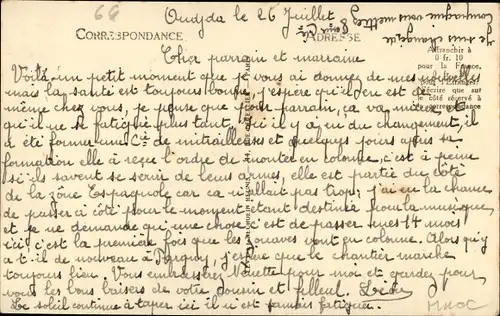 66
Oudjda le 26 Juillet
CORRESPONDANCE
ADRESSE
Je suis changé de
Compagnie vous mettrez 8
Affranchir à
0 fr. 10
pour la France,
Cher parrain et marraine
Voilà un petit moment que je vous ai donner de mes nouvelles
mais la santé est toujours bonne, j'espère qu'il en est de
même chez vous, je pense que pour parrain, ça va mieux et
qu'il ne se fatigue plus tant. Ici il y a eu du changement, il
a été former une Cie de mitrailleuses et quelques jours après sa
formation elle à reçue l'ordre de monter en colonne, c'est à peine
si ils savent se servir de leurs armes, elle est partie du côté
de la zône Espagnole car ca n'allait pas trop; j'ai eu la chance
de passer a côté pour le moment étant destiné pour la musique
et je ne demande qu'une chose c'est de passer mes 14 mois
ici, c'est la première fois que les zouaves vont en colonne. Alors qu'y
a t-il de nouveau à j'espère que le chantier marche
toujours bien. Vous embrasserez Nénette pour moi et gardez pour
vous les bons baisers de votre cousin et filleul.
Le soleil continue à taper ici il n'est pas fatigué.
MAOC